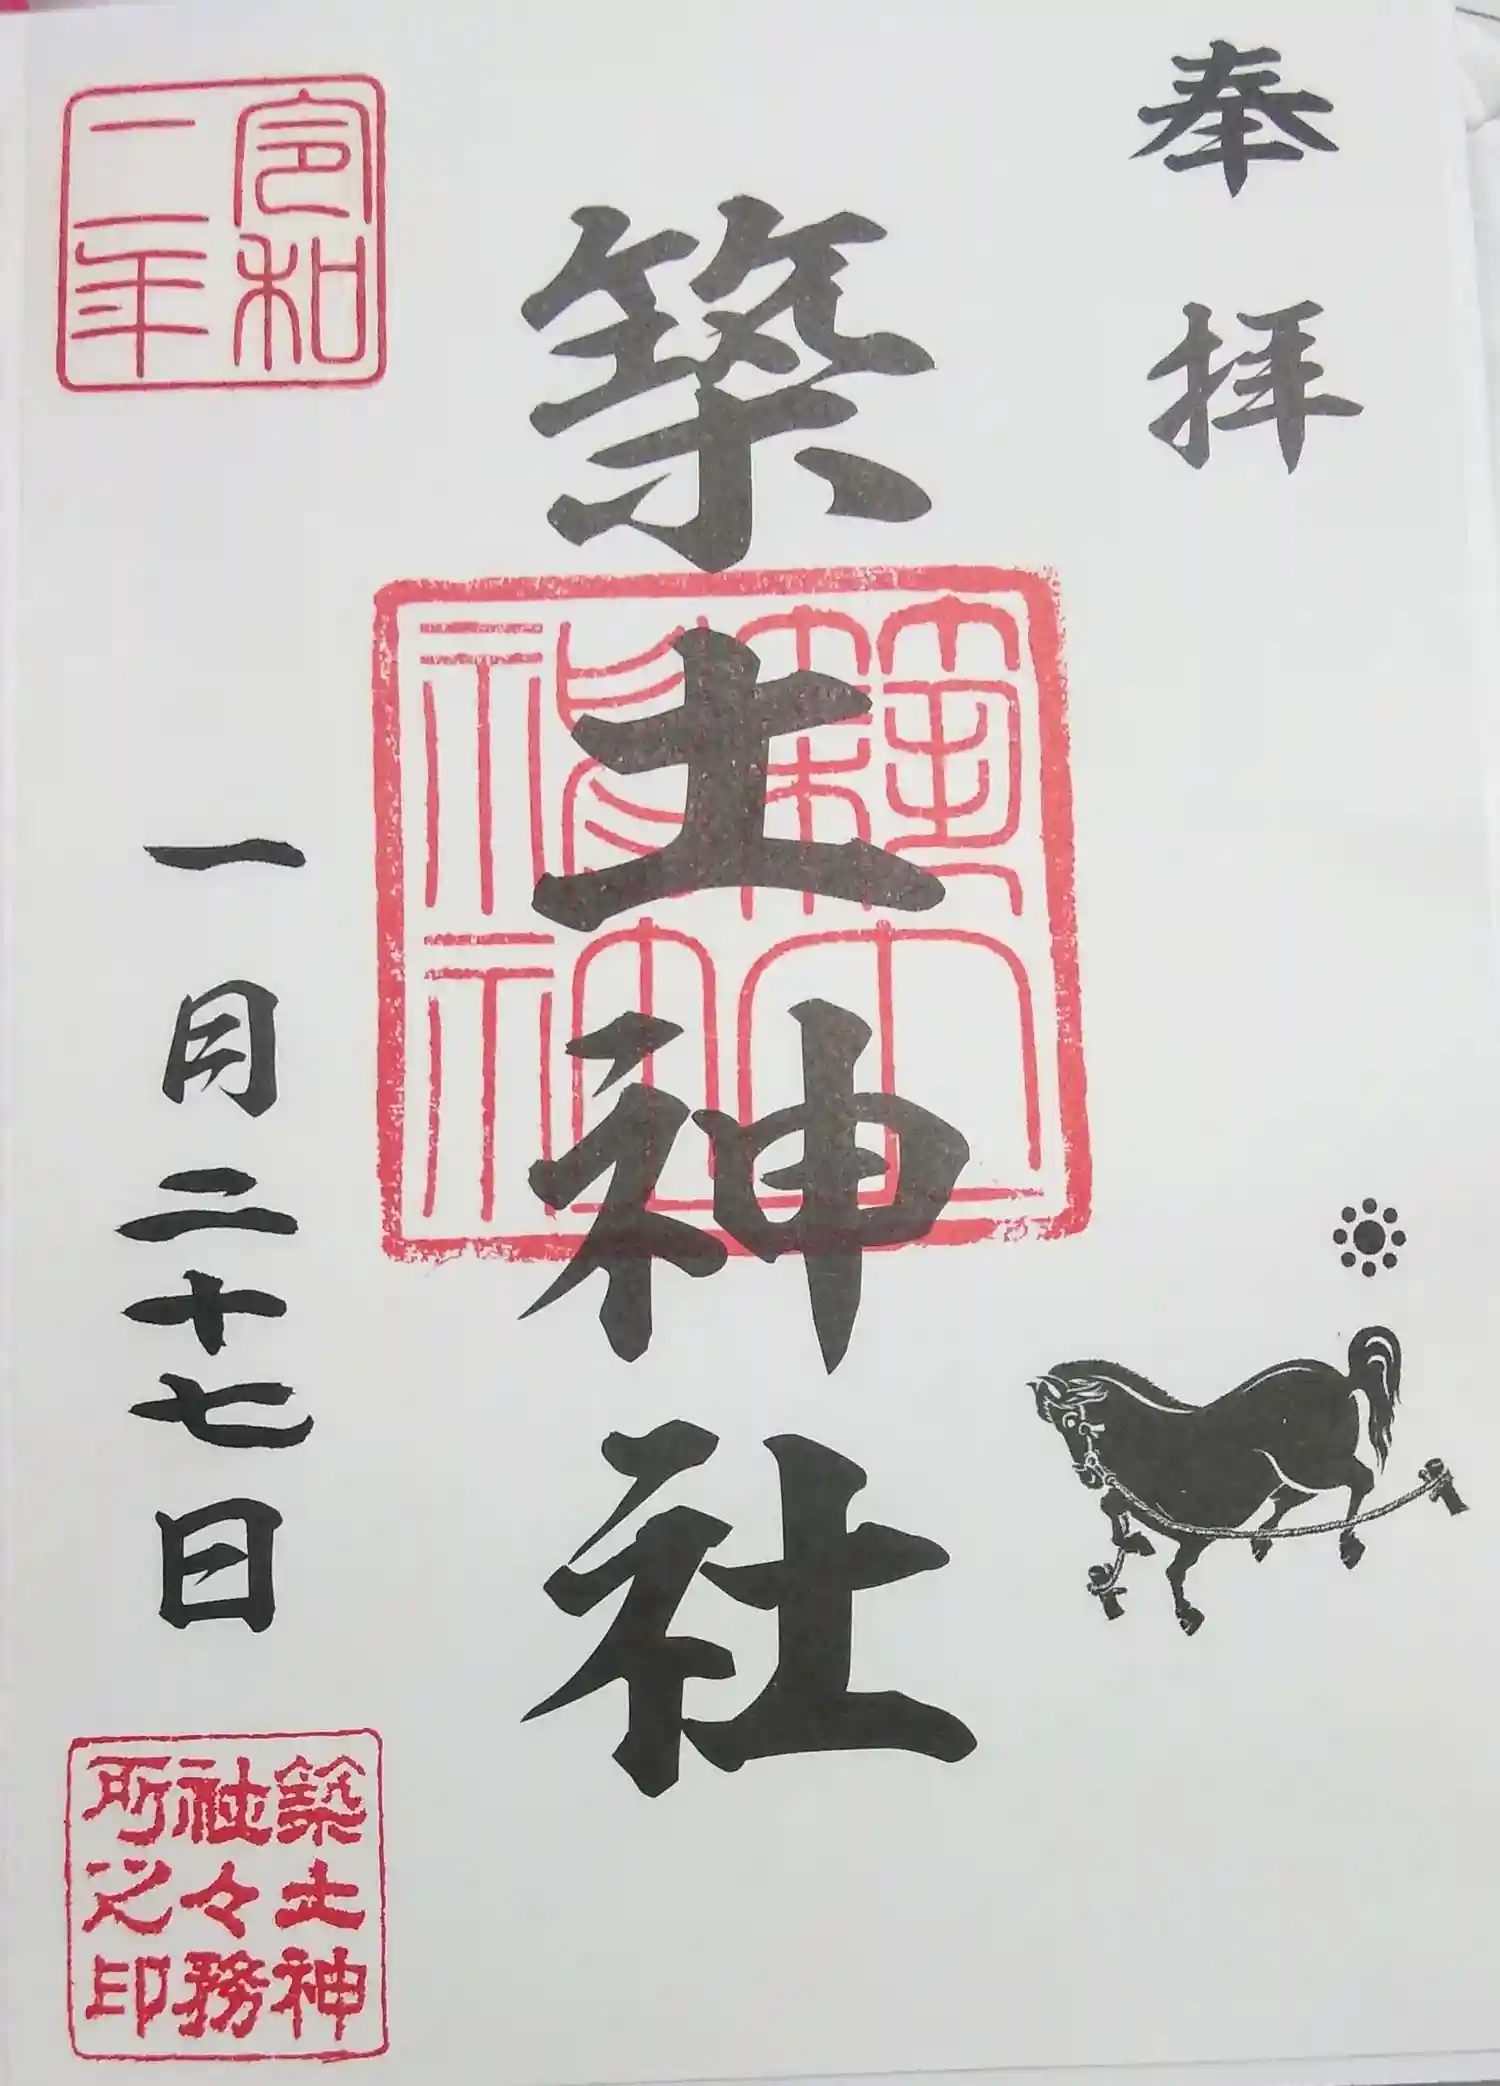 奉拝
築土神社
令和
二年
一月二十七日
築土神
社々務
所之印